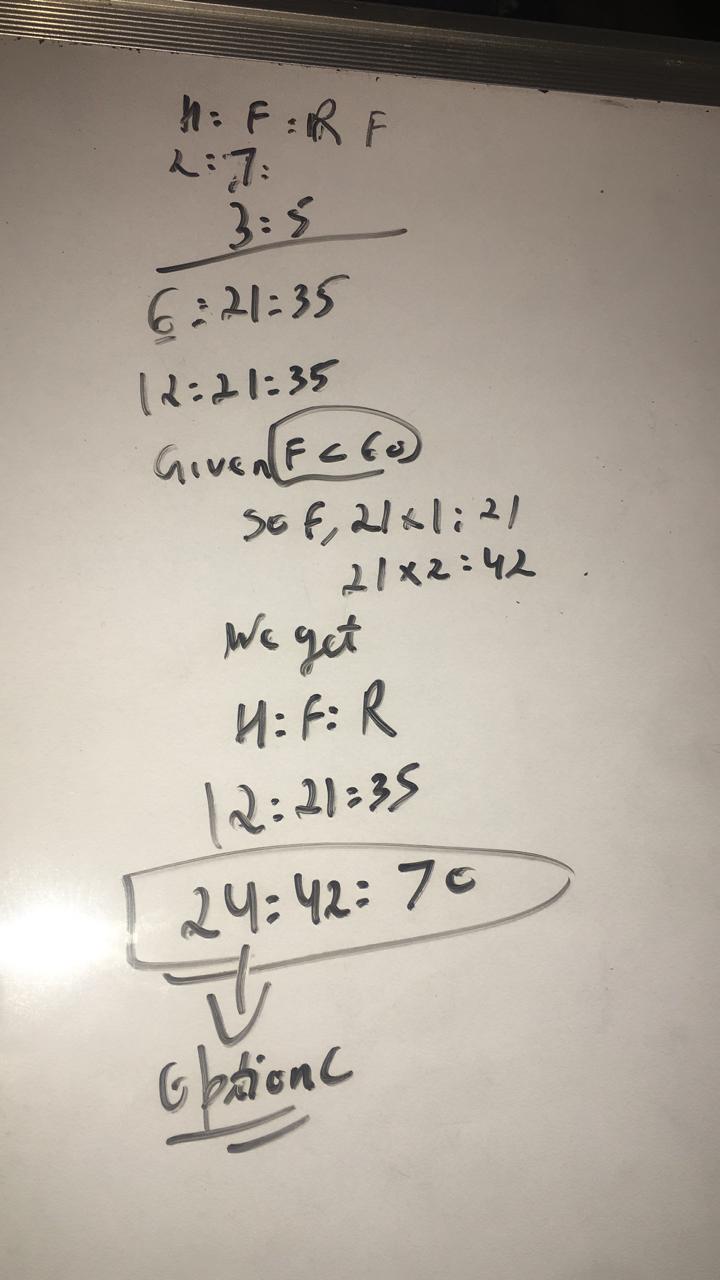 H: F :R F
2:7:
3:5
6:21:35
12:21:35
Given F < 60
So F, 21×1:21
21×2=42
We get
H:F:R
12:21:35
24:42:70
Option C